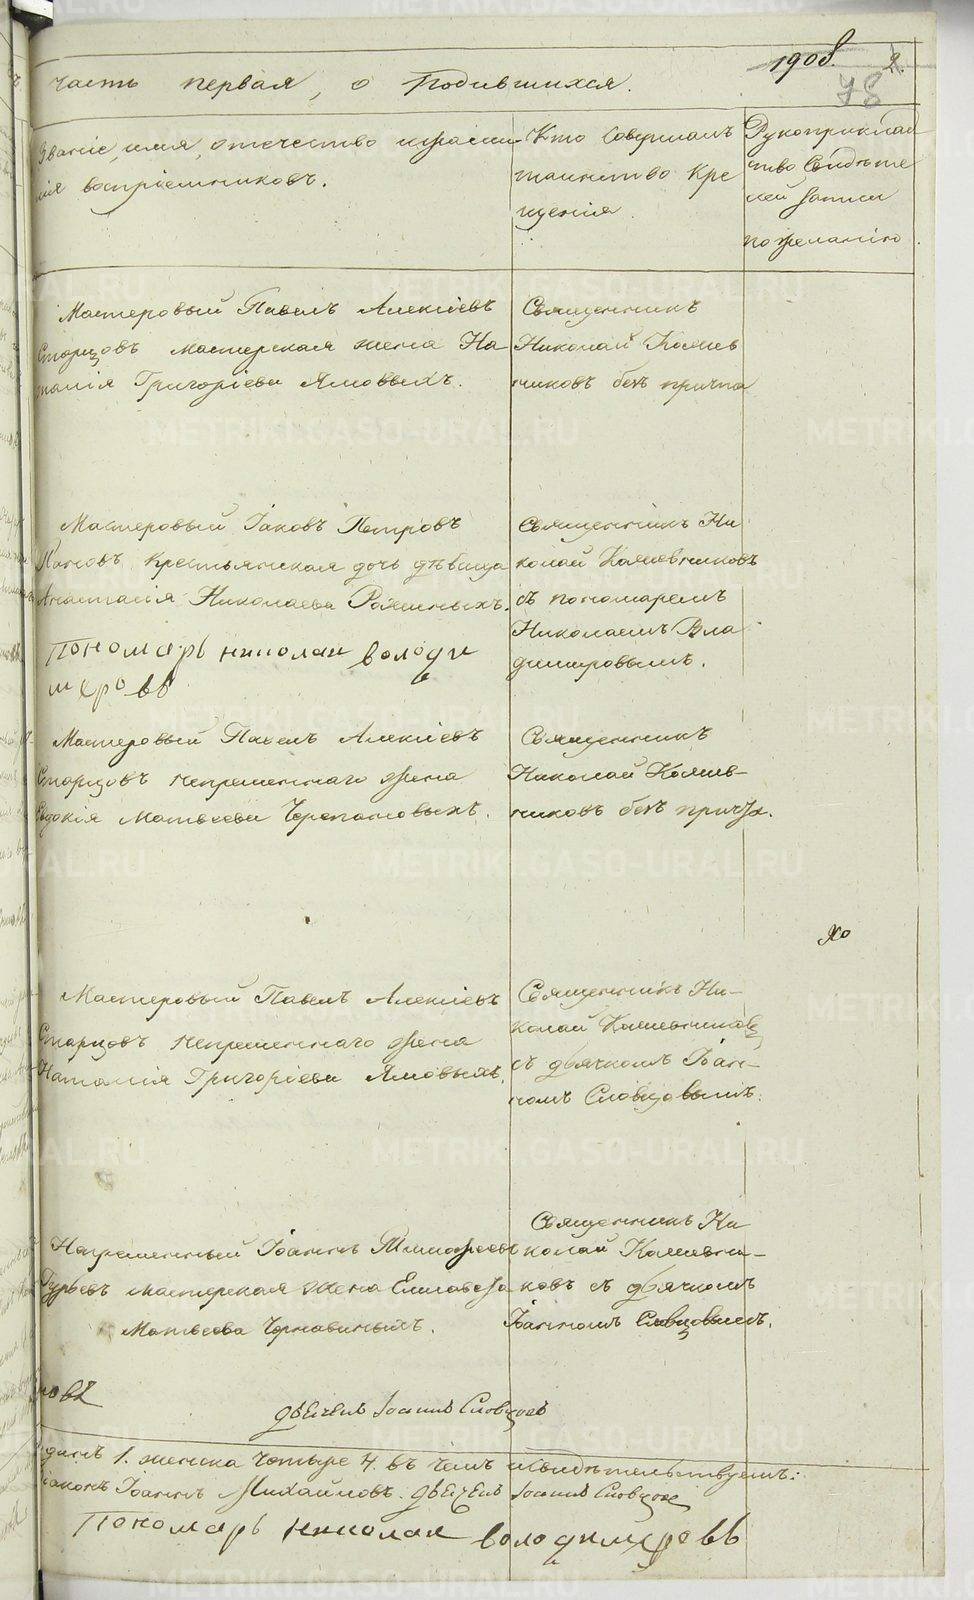 1908.
78
часть первая, о Родившихся.
Званіе, имя, отечество и фамилія воспріемниковъ.
Кто совершалъ
таинство Кре
щенія.
Рукоприклад
ство свидѣте
лей записи
по желанію.
Мастеровый Павелъ Алексіевъ
Старцовъ мастерская жена На
талія Григоріева Ямовыхъ.
Священникъ
Николай Кошев
никовъ безъ причта
Мастеровый Іаковъ Петровъ
Пановъ крестьянская дочь дѣвица
Анастасія Николаева
Пономарь николаи володи
меровъ
Священникъ Ни
колай Кошевниковъ
съ пономаремъ
Николаемъ Вла
димировымъ.
Мастеровый Павелъ Алексіевъ
Старцовъ непременнаго жена
Евдокія Матвеева Черепановыхъ.
Священникъ
Николай Кошев-
никовъ безъ
Мастеровый Павелъ Алексіевъ
Старцовъ непременнаго жена
Наталія Григоріева Ямовыхъ.
Священникъ Ни-
колай Кошевниковъ
съ дьячкомъ Іоан-
номъ Словцовымъ.
Непременный Іоаннъ Тимофеевъ
Гурьевъ мастерская жена Елисавета
Матвеева
Священникъ Ни
колай Кошевни-
ковъ съ дьячкомъ
Іоанномъ Словцовымъ.
новъ
дьячекъ Іоаннъ Словцовъ
1. женска четыре 4. въ чемъ и свидѣтельствуемъ:
Іоаннъ Михайловъ. дьячекъ Іоаннъ Словцовъ
Пономарь николаи володимеровъ
METRIKI.GASO-URAL.RU